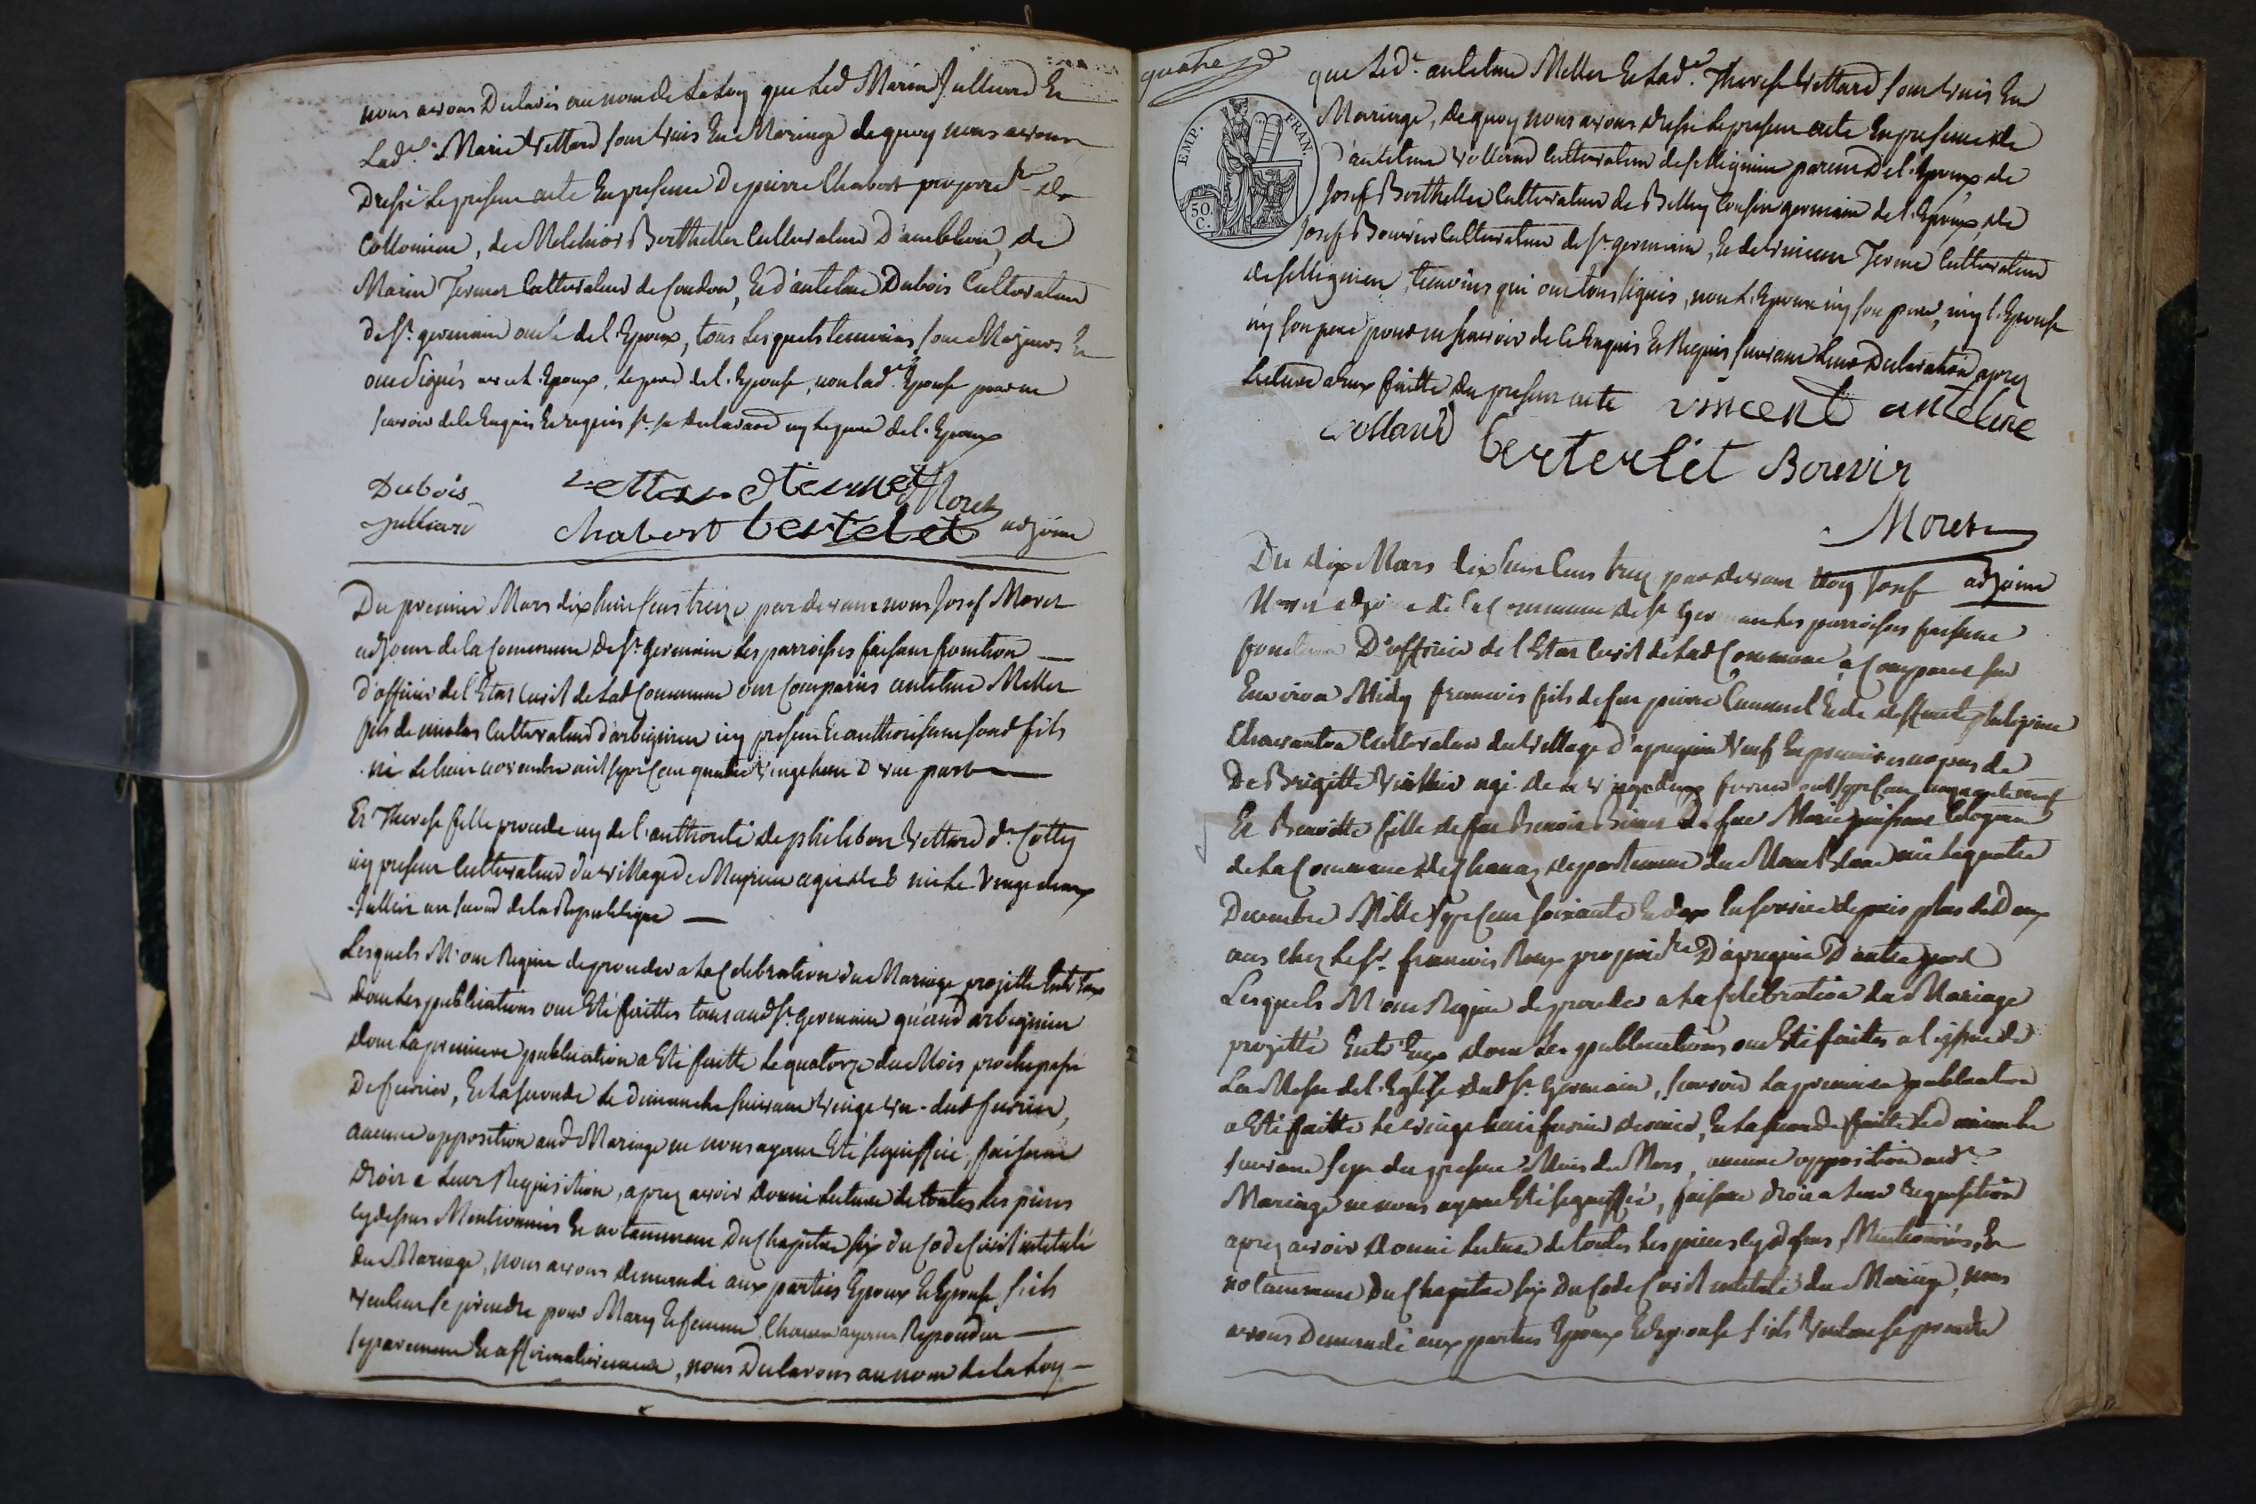 nous avons Declarés au nom de La Loy que Led Marin Julliard Et
Lad.e Marie Vettard sont Unis En Mariage de quoy nous avons
Dressé Le present acte En presence De pierre Chabort propre.re de
Collomieu, de Melchior Berthellet Cultivateur D'ambléon, de
Marin Jermet Cultivateur de Condon, Et d'antelme Dubois Cultivateur
de St. germain oncle de l'Epoux, tous Lesquels temoins sont Majeurs Et
ont signés avec L'Epoux, Le pere de l'Epouse, non lad.e Epouse pour ne
scavoir de le Enquis Et requis ny Le pere de l'Epoux
Dubois Vettar Jermet Moret
Julliard Chabort bertelet adjoint
Du premier Mars dix huit Cent treize par devant nous Josef Moret
adjoint de la Commune de St. germain Les parroisses faisant fonction
d'officier de l'Etat Civil de Lad Commune ont Comparus antelme Mellet
fils de nicolas Cultivateur d'arbignieu icy present Et authorisant sond fils
né Le huit novembre mil sept Cent quatre vingt huit D'une part
Et Therese fille procede icy de l'authorité de philibert Vettard dt. Cotty
icy present Cultivateur du village de Meyrieu agée de née Le Vingt deux
Juillet an second de la Republique
Lesquels M'ont Requis de proceder a La Celebration du Mariage projetté Entr'Eux
dont Les publications ont Eté faittes tant aud St. Germain qu'aud arbignieu
dont La premiere publication a Eté faitte Le quatorze du Mois proche passé
De fevrier, Et La seconde Le dimanche suivant vingt un dud fevrier,
aucune opposition aud Mariage ne nous ayant Eté signiffiée, faisant
Droit a Leur Requisition, aprez avoir donné Lecture de toutes Les pieces
Cy dessus Mentionnées Et notamment Du Chapitre six du Code Civil intitulé
du Mariage, nous avons demandé aux parties Epoux Et Epouse s'ils
veulent se prendre pour Mary Et femme, Chacun ayant Repondu
separement Et affirmativement, nous Declarons au nom de La Loy
quatre
EMP. FRAN.
50. C.
que Led.t antelme Mellet Et Lad.e Therese Vettard sont Unis En
Mariage, de quoy nous avons dressé Le present acte En presence de
D'antelme Volland Cultivateur de sellignieu parent De l'Epoux de
Josef Berthellet Cultivateur de Belley Cousin germain de l'Epoux, de
Josef Bouvier Cultivateur de St. germain, Et de vincent Jerme Cultivateur
de sellignieu, temoins qui ont tous signés, non L'Epoux ny son pere, ny l'Epouse
ny son pere pour ne scavoir de le Enquis Et Requis suivant Leur Declaration aprez
Lecture a Eux faitte du present acte vincent antelme
volland berterlet Bouvir
Moret
adjoint
Du dix Mars dix huit Cent treize par devant Moy Josef
Moret adjoint de la Commune de St. Germain Les parroisses faisant
fonction D'officier de l'Etat Civil de Lad Commune, a Comparu sur
Environ Midy francois fils de feu pierre Et de deffunte philipine
Charantra Cultivateur du village d'apregnin Veuf En premieres noces de
De Brigitte agé de
Et Benoitte fille de feu Benoit de feu Marie
de La Commune de Chanaz departement du Mont blanc née Le quatre
Decembre Mille sept Cent soixante Et dix En service depuis plus de Deux
ans chez Le Sr. francois Roux propriet.re D'apregnin D'autre part
Lesquels M'ont Requis de proceder a La Celebration du Mariage
projetté Entr'Eux dont Les publications ont Eté faites a l'issue de
La Messe de l'Eglise dud St. Germain, scavoir La premiere publication
a Eté faitte Le vingt huit fevrier dernier, Et La seconde faitte Led dimanche
suivant sept du present Mois de Mars, aucune opposition aud.t
Mariage ne nous ayant Eté signiffiée, faisant droit a Leur requisition
aprez avoir donné Lecture de toutes Les pieces Cy dessus Mentionnées, Et
notamment Du Chapitre six Du Code Civil intitulé du Mariage, nous
avons Demandé aux parties Epoux Et Epouse s'ils Veulent se prendre